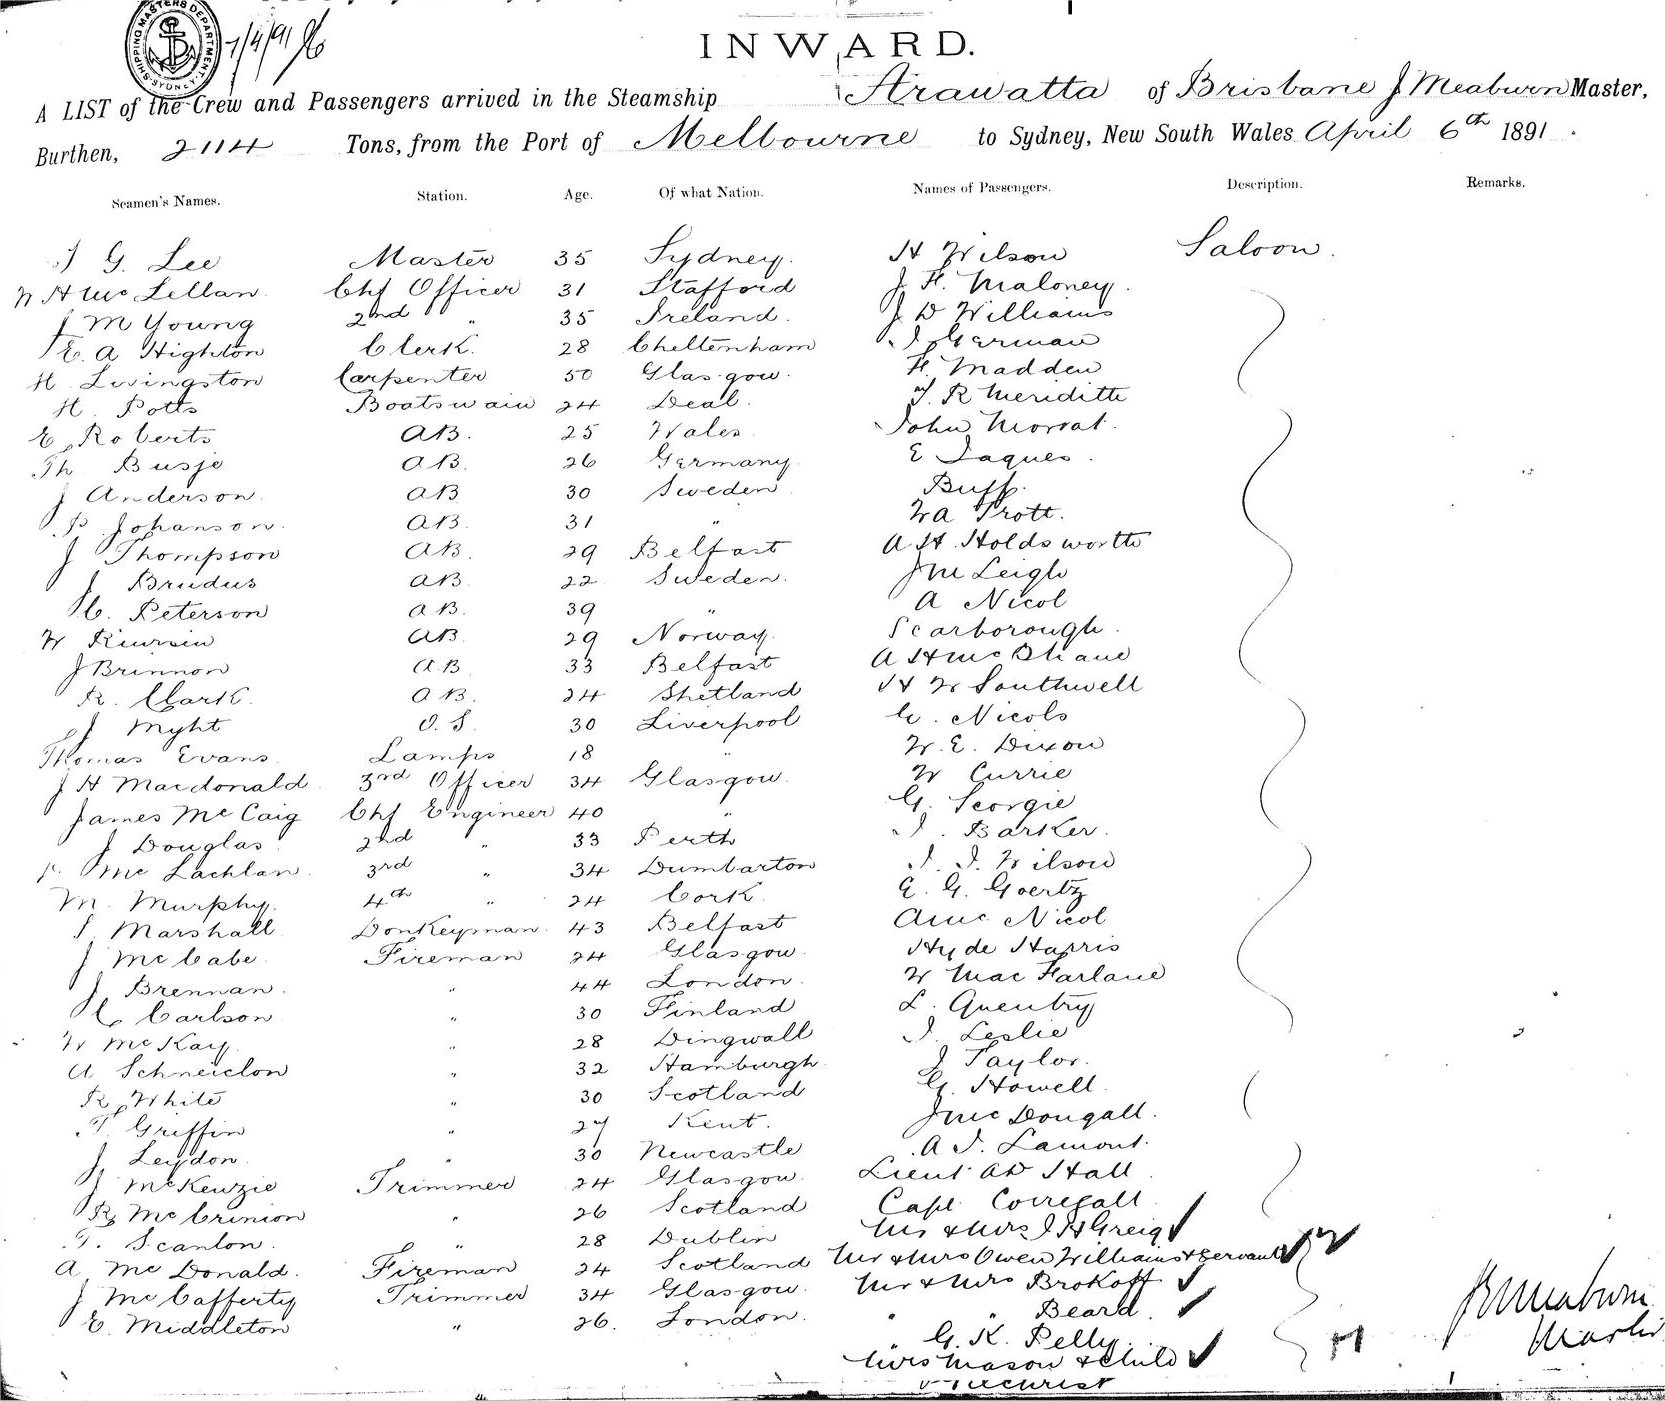 SHIPPING MASTERS DEPARTMENT SYDNEY
7/4/91
INWARD.
A LIST of the Crew and Passengers arrived in the Steamship Arawatta of Brisbane J Meaburn Master,
Burthen, 2114 Tons, from the Port of Melbourne to Sydney, New South Wales April 6th 1891.
Seamen's Names. Station. Age. Of what Nation. Names of Passengers. Description. Remarks.
J G. Lee Master 35 Sydney. H Wilson Saloon.
W H McLellan Chf Officer 31 Stafford J. F. Maloney.
J M Young 2nd " 35 Ireland. J D Williams
E. A Highton Clerk. 28 Cheltenham J. German
H Livingston Carpenter 50 Glasgow. F. Madden
H. Potts Boatswain 24 Deal. T. R Meridith
E. Roberts AB. 25 Wales. John Morrat.
Th Busje AB. 26 Germany. E Jaques.
J Anderson AB 30 Sweden Buff.
P Johanson. AB. 31 " Wa Trott.
J Thompson AB. 29 Belfast A H. Holdsworth
J Brudus AB. 22 Sweden. J M Leigh
C. Peterson AB. 39 " A Nicol
W AB. 29 Norway. Scarborough.
J Brinnon AB 33 Belfast A H McShane
R. Clark. AB. 24 Shetland H W Southwell
J Myht O.S. 30 Liverpool G. Nicols
Thomas Evans Lamps 18 " W. E. Dixon
J H Macdonald. 3rd Officer 34 Glasgow. W Currie
James McCaig Chf Engineer 40 " G. Georgie
J Douglas. 2nd " 33 Perth J. Barker.
P. McLachlan. 3rd " 34 Dumbarton J. J. Wilson
M. Murphy. 4th " 24 Cork. E. G. Goertz
S. Marshall Donkeyman. 43 Belfast A Mc Nicol
J McCabe Fireman 24 Glasgow. Hyde Harris
J. Brennan. " 44 London. W MacFarlane
C. Carlson. " 30 Finland L. Quentry
W McKay. " 28 Dingwall J. Leslie
A Schneidon " 32 Hamburgh. J Taylor.
R. White " 30 Scotland G. Howell.
T. Griffin " 27 Kent. J McDougall.
J. Leydon. " 30 Newcastle A. J. Lamont.
J McKenzie Trimmer 24 Glasgow. Lieut AD Hall
R McCrinion " 26 Scotland Capt. Corregall
G. Scanlon. " 28 Dublin Mr & Mrs J H Greig
A McDonald. Fireman 24 Scotland Mr & Mrs Owen Williams & Servant
J McCafferty Trimmer 34 Glasgow. Mr & Mrs Brokoff
E. Middleton " 26. London. " " Beard.
G. K. Pelly.
Mrs Mason & Child
J Meaburn
Master